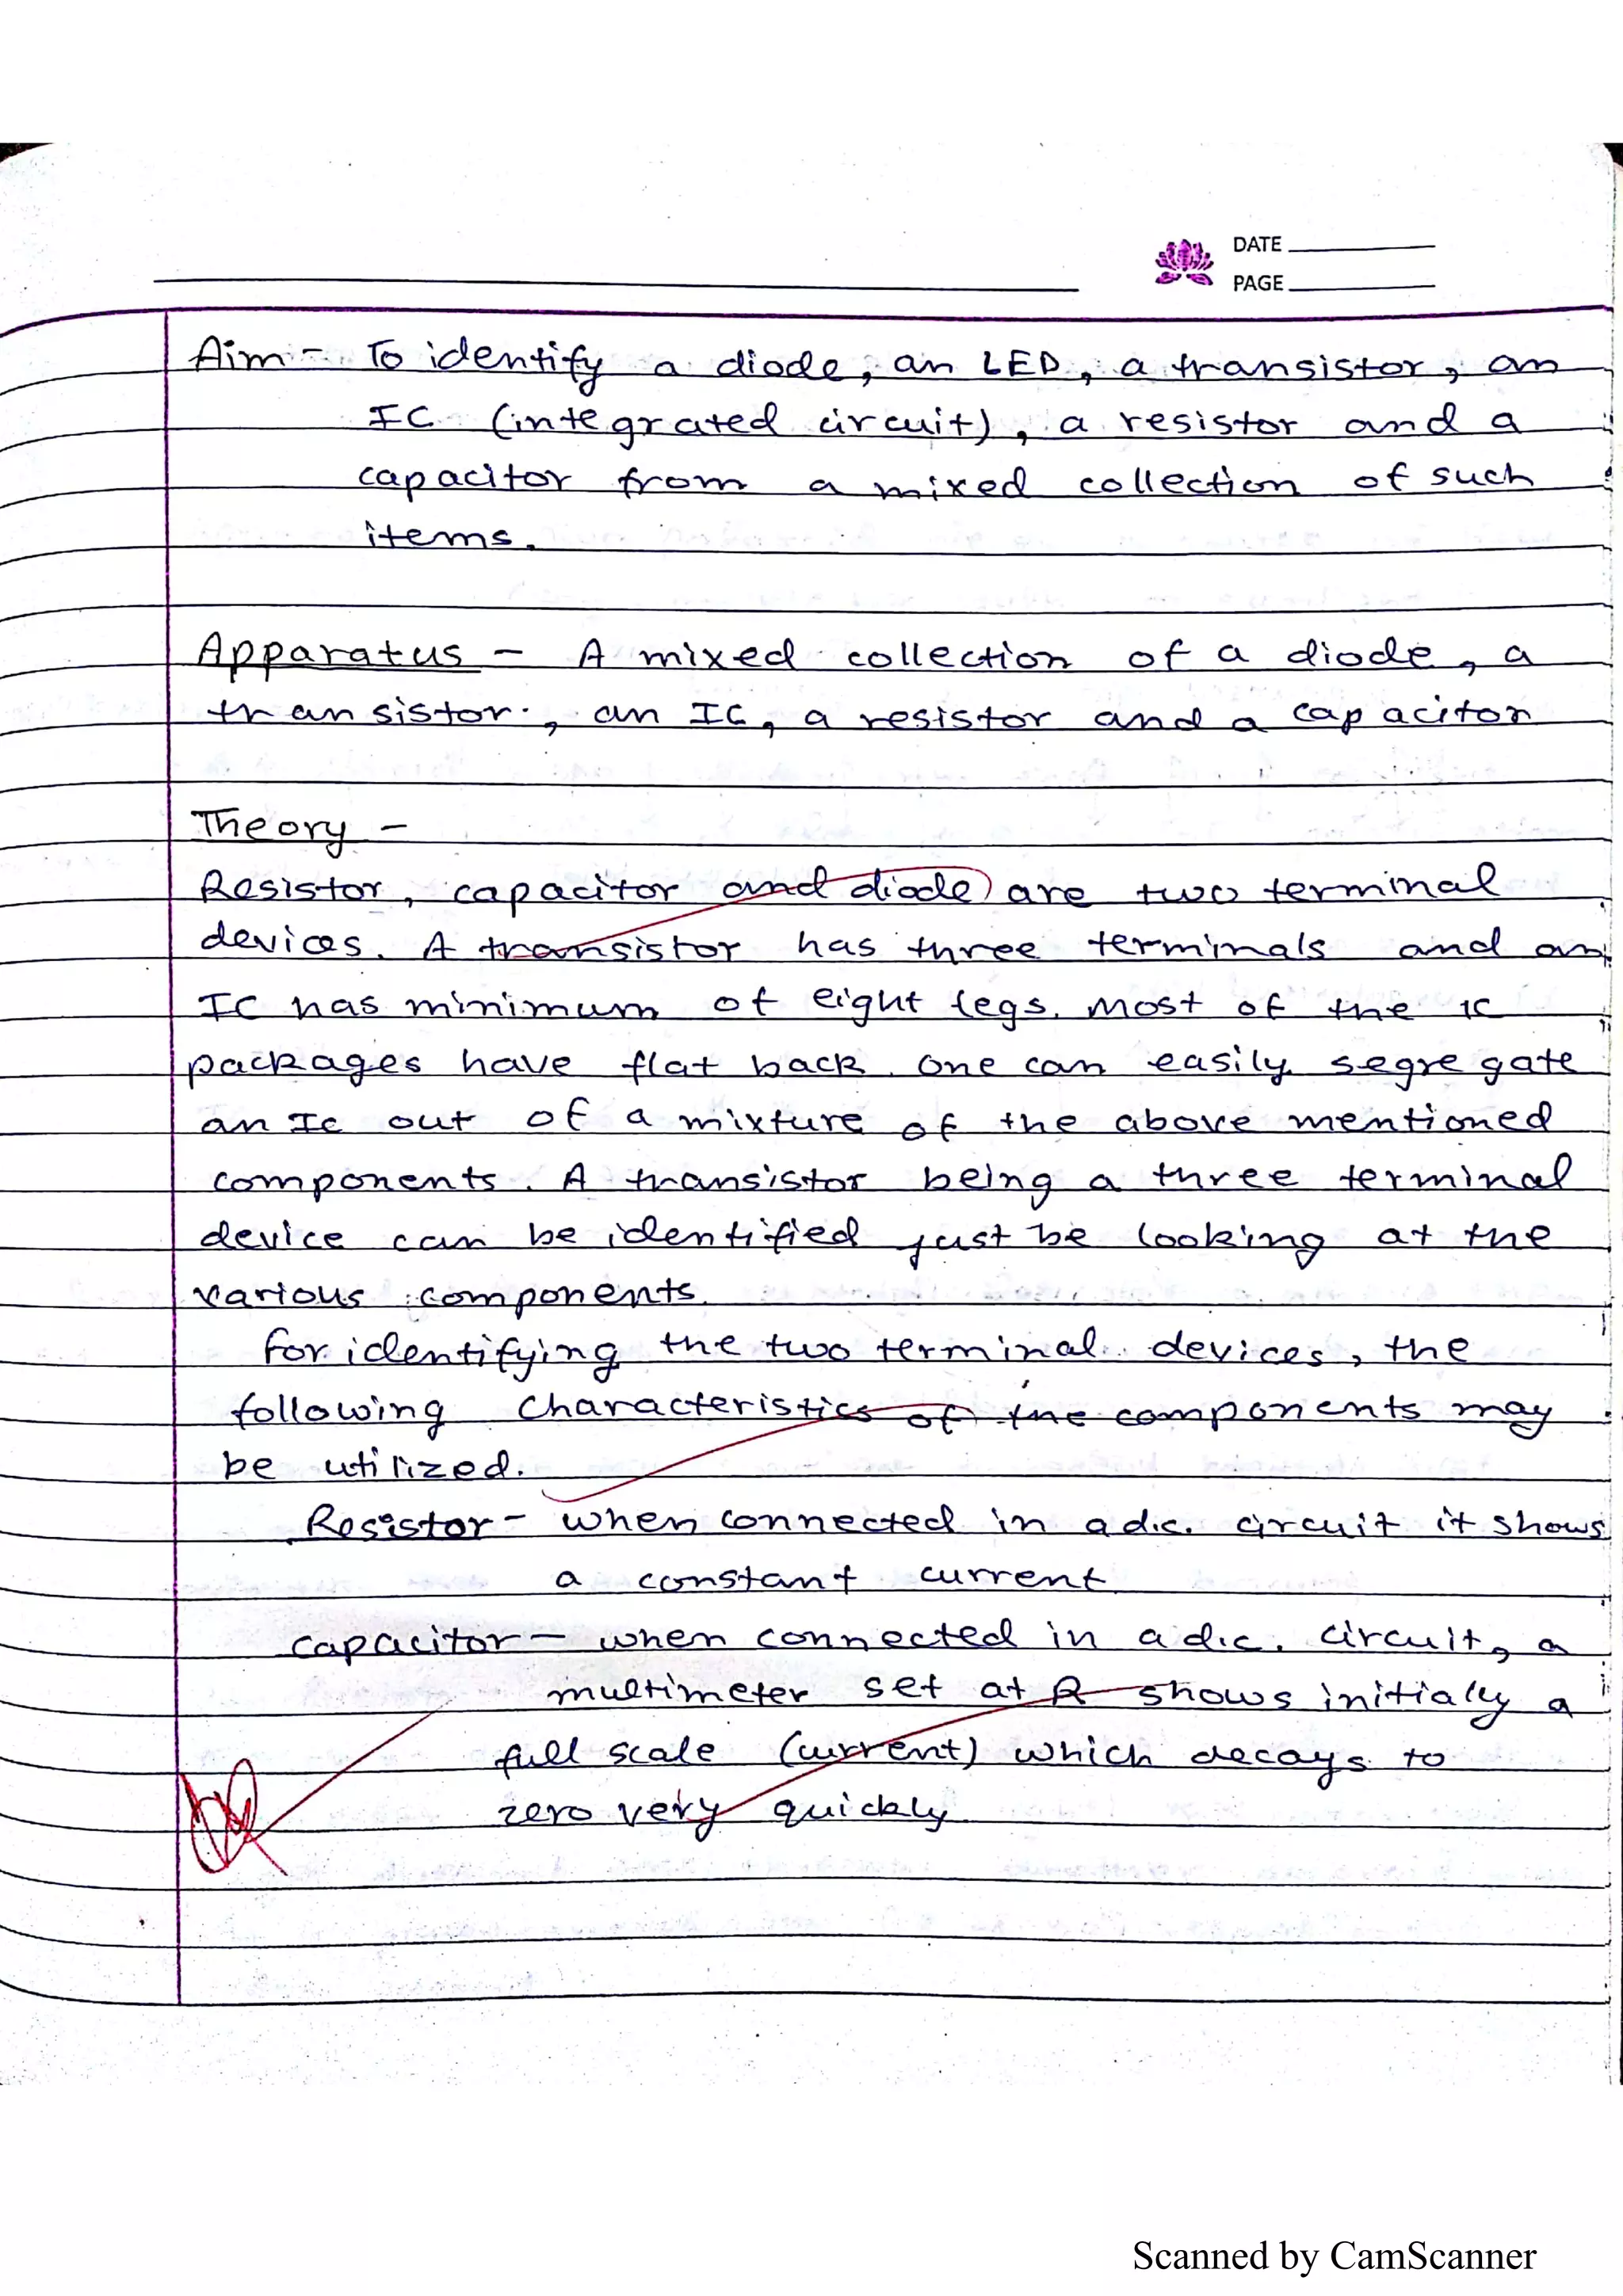 DATE
PAGE
Aim - To identify a diode, an LED, a transistor, an
IC (integrated circuit), a resistor and a
capacitor from a mixed collection of such
items.
Apparatus - A mixed collection of a diode, a
transistor, an IC, a resistor and a capacitor
Theory -
Resistor, capacitor and diode are two terminal
devices. A transistor has three terminals and an
IC has minimum of eight legs. Most of the IC
packages have flat back. One can easily segregate
an Ic out of a mixture of the above mentioned
components. A transistor being a three terminal
device can be identified just be looking at the
various components.
For identifying the two terminal devices, the
following characteristics of the components may
be utilized.
Resistor - when connected in a d.c. circuit it shows
a constant current
capacitor - when connected in a d.c. circuit, a
multimeter set at R shows initially a
full scale (current) which decays to
zero very quickly
Scanned by CamScanner